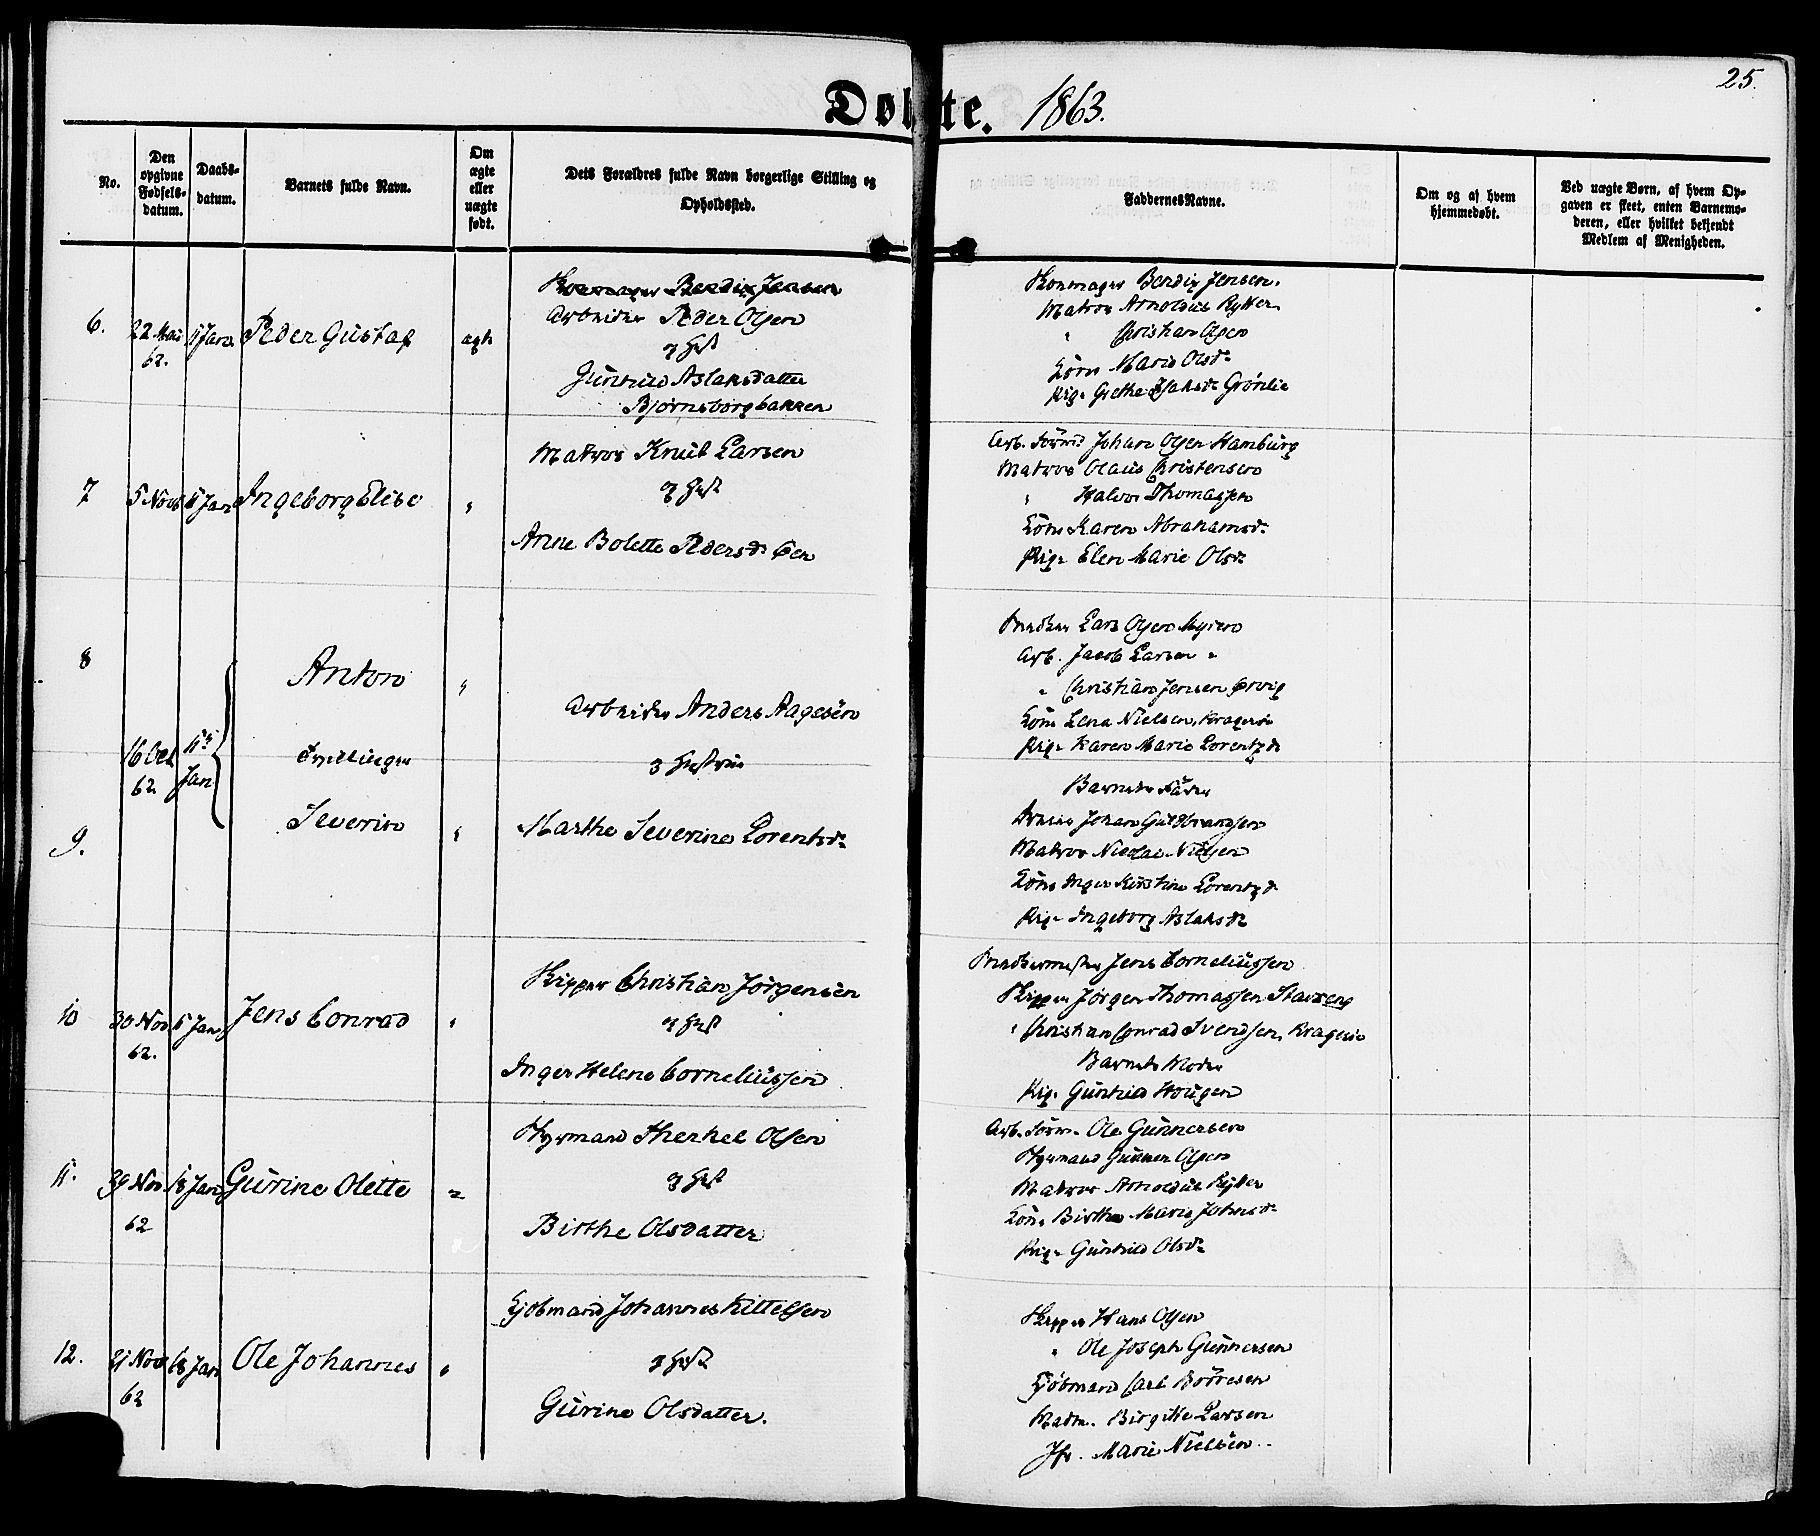 25.
Døbte. 1863.
No.
Den opgivne Fødsels-datum.
Daabs-datum.
Barnets fulde Navn.
Om ægte eller uægte født.
Dets Forældres fulde Navn borgerlige Stilling og Opholdssted.
Faddernes Navne.
Om og af hvem hjemmedøbt.
Ved uægte Børn, af hvem Opgaven er skeet, enten Barnemoderen, eller hvilket bekjendt Medlem af Menigheden.
6.
22 Mai 62.
Jan.
Peder Gustaf
ægte
Arbeider Peder Olsen
og Hust
Gunhild Aslaksdatter
Bjørnsborgbakken
Bendix Jensen.
Matros Arnoldus Rykter
" Christian Olsen
Kone Marie Olsdr
Pige Grethe Grönlie
7
5 Novb
Jan
Ingeborg Elise
"
Matros Knut Larsen
og Hust
Anne Bolette Pedersdr
Arb. Form. Johan Olsen Hamburg
Matros Olaus Christensen
" Halvor Thomassen
Kone Karen Abrahamsdr
Pige Elen Marie Olsdr
8
16 Oct 62
Jan
Anton
"
Tvillinger
Arbeider Anders Aagesen
& Hustrue
Marthe Severine Lorentsdr
Snedker Lars Olsen Myren
Arb. Jacob Larsen "
" Christian Jensen
Kone Lena Nielsen, Kragerø
Pige Karen Marie Lorentzdr
9.
Severin
"
Barnets Fader
Johan Guldbrandsen
Matros Nicolai Nielsen
Kone Inger Kirstine Lorentzdr
Pige Ingeborg Aslaksdr
10
30 Nov 62.
Jan
Jens Conrad
"
Skipper Christian Jörgensen
og Hust
Inger Helene Corneliussen
Snedkermester Jens Corneliussen
Skipper Jörgen Thomassen Stavseng
" Christian Conrad Svendsen, Kragerø
Barnets Moder
Pig. Gunhild Hougen
11.
Nov. 62
18 Jan
Gurine Olette
"
Styrmand Therkel Olsen
og Hust
Birthe Olsdatter
Arb. Form. Ole Gunnersen
Styrmand Gunner Olsen
Matros Arnoldus Rykter
Kone Birthe Marie Johnsdr
Pige Gunhild Olsdr
12.
21 Nov 62
18 Jan
Ole Johannes
"
Kjöbmand Johannes Kittelsen
& Hust
Gurine Olsdatter.
Skipper Hans Olsen
" Ole Joseph Gunnersen
Kjöbmand Carl
Madm. Birgitte Larsen
Jfr. Marie Nielsen